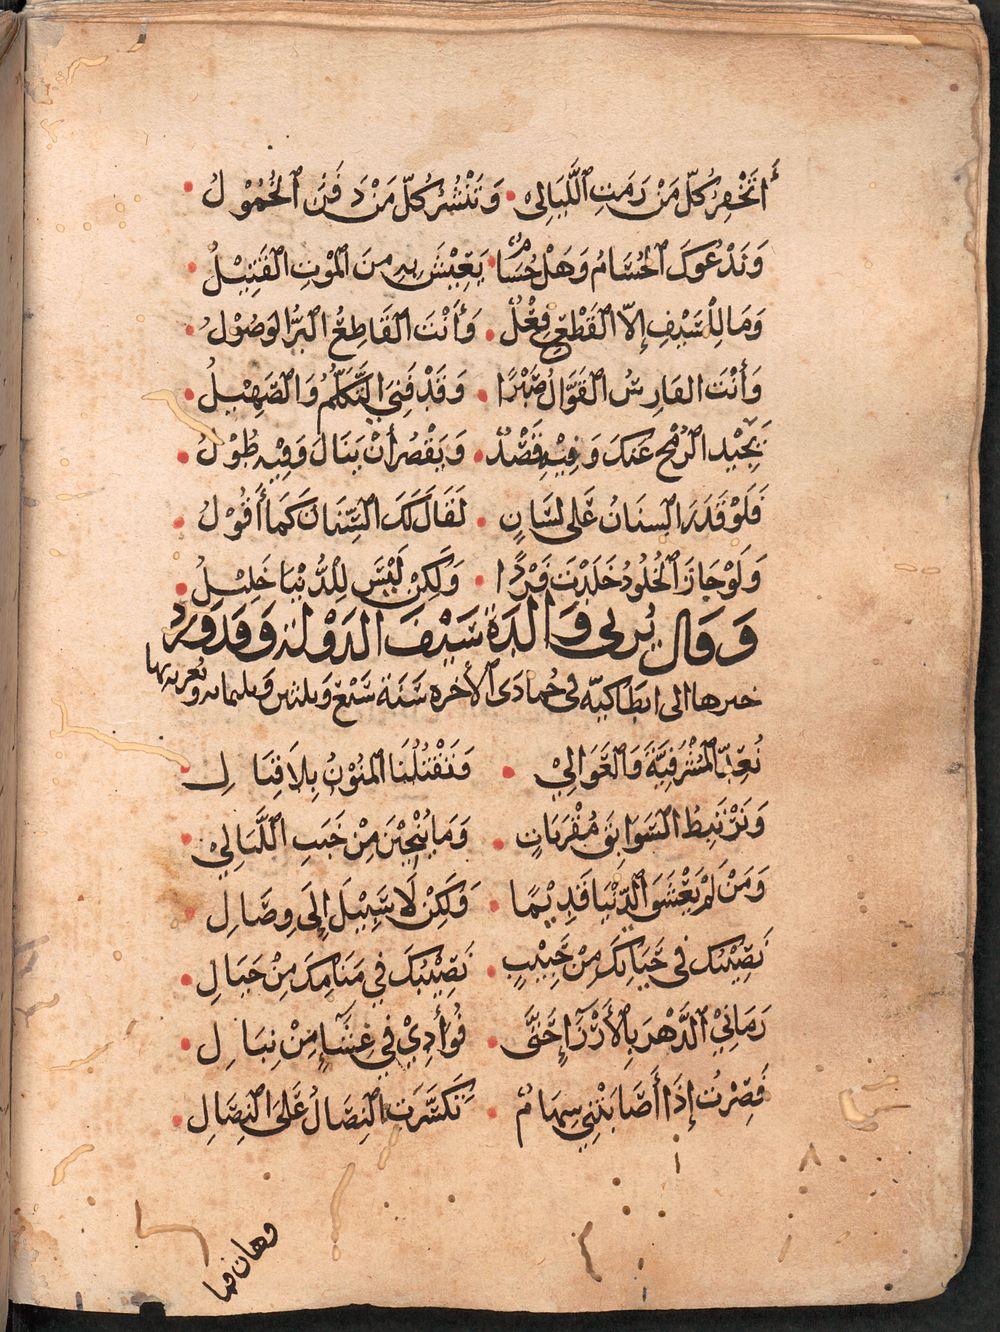 أَتَخْفِرُ كُلَّ مَنْ رَمَتِ اللَّيَالِي • وَتَنْشُرُ كُلَّ مَنْ دَفَنَ الْخُمُوْلُ •
وَنَدْعُوكَ الْحُسَامَ وَهَلْ حُسَامٌ • يَعِيْشُ بِهِ مِنَ الْمَوْتِ الْقَتِيْلُ •
وَمَا لِلسَّيْفِ إِلَّا الْقَطْعَ فِعْلٌ • وَأَنْتَ الْقَاطِعُ الْبَرُّ الْوَصُوْلُ •
وَأَنْتَ الفَارِسُ الْقَوَّالُ صَبْرًا • وَقَدْ فَنِيَ التَّكَلُّمُ وَالصَّهِيْلُ •
يَحِيْدُ الرُّمْحُ عَنكَ وَفِيْهِ قَصْدٌ • وَيَقْصُرُ أَنْ يَنَالَ وَفِيْهِ طُوْلُ •
فَلَوْ قَدَرَ السِنَانُ عَلَى لِسَانٍ • لَقَالَ لَكَ السِّنَانُ كَمَا أَقُوْلُ •
وَلَوْ جَازَ الْخُلُودُ خَلَدْتَ فَرْدًا • وَلَكِنْ لَيْسَ لِلدُّنْيَا خَلِيْلُ •
وَقَالَ يُرثى وَالِدَةَ سَيْفَ الدَوْلَة وَقَدْ وَرَدَ
خبرها الى انطَاكيّه فى جُمادَى الأخره سَنَةَ سَبْعٍ وَثلثين وَثلثمائه وَيُعزيه بها
نُعِدُّ الْمَشْرَفِيَّةَ وَالْعَوَالِيْ • وَتَقْتُلُنَا الْمَنُوْنُ بِلَا قِتَالِ
وَنَرْتَبِطُ السَّوَابِقَ مُقْرَبَاتٍ • وَمَا يُنْجِيْنَ مِنْ خَبَبِ اللَّيَالِيْ •
وَمَنْ لَمْ يَعْشَقِ الدُّنْيَا قَدِيْمًا • وَلَكِنْ لَا سَبِيْلَ إِلَى وِصَالِ •
نَصِيْبُكَ فى حَيَاتِكَ مِنْ حَبِيْبٍ • نَصِيْبُكَ فِي مَنَامِكَ مِنْ خَيَالِ •
رَمَانِيْ الدَّهْرُ بِالْأَرْزَآءِ حَتَّى • فُؤَادِيْ فِي غِشَآءٍ مِنْ نِبَالِ •
فَصِرْتُ إِذَا أَصَابَتْنِي سِهَامٌ • تَكَسَّرَتِ النِصَالُ عَلَى النِصَالِ •
وهان فما